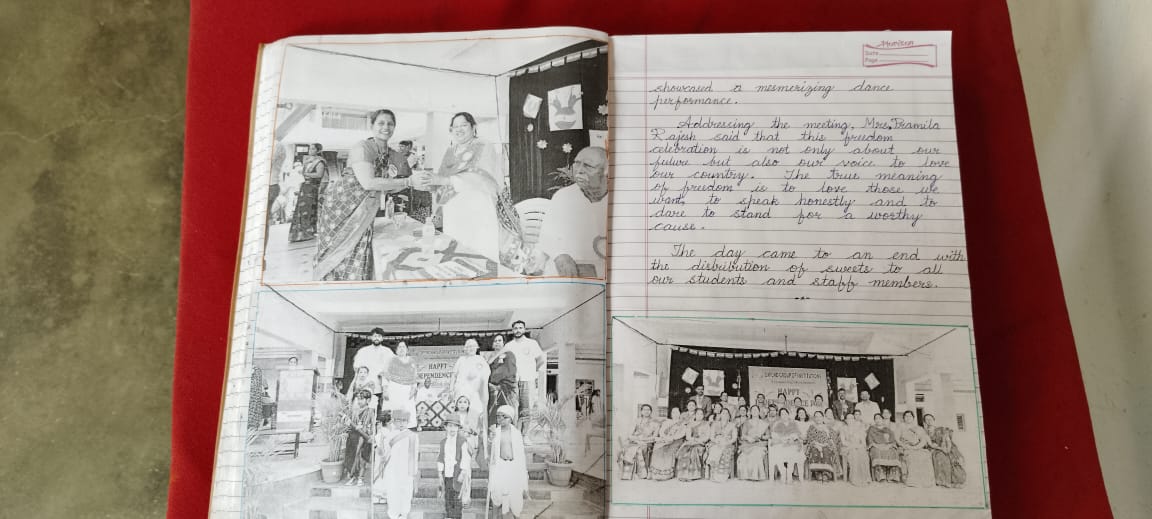 HAPPY
INDEPENDENCE
Date
Page
showcased a mesmerizing dance
performance.
Addressing the meeting, Mrs. Pramila
Rajesh said that this freedom
celebration is not only about our
future but also our voice to love
our country. The true meaning
of freedom is to love those we
want, to speak honestly and to
dare to stand for a worthy
cause.
The day came to an end with
the distribution of sweets to all
our students and staff members.
GROUP OF INSTITUTIONS
HAPPY